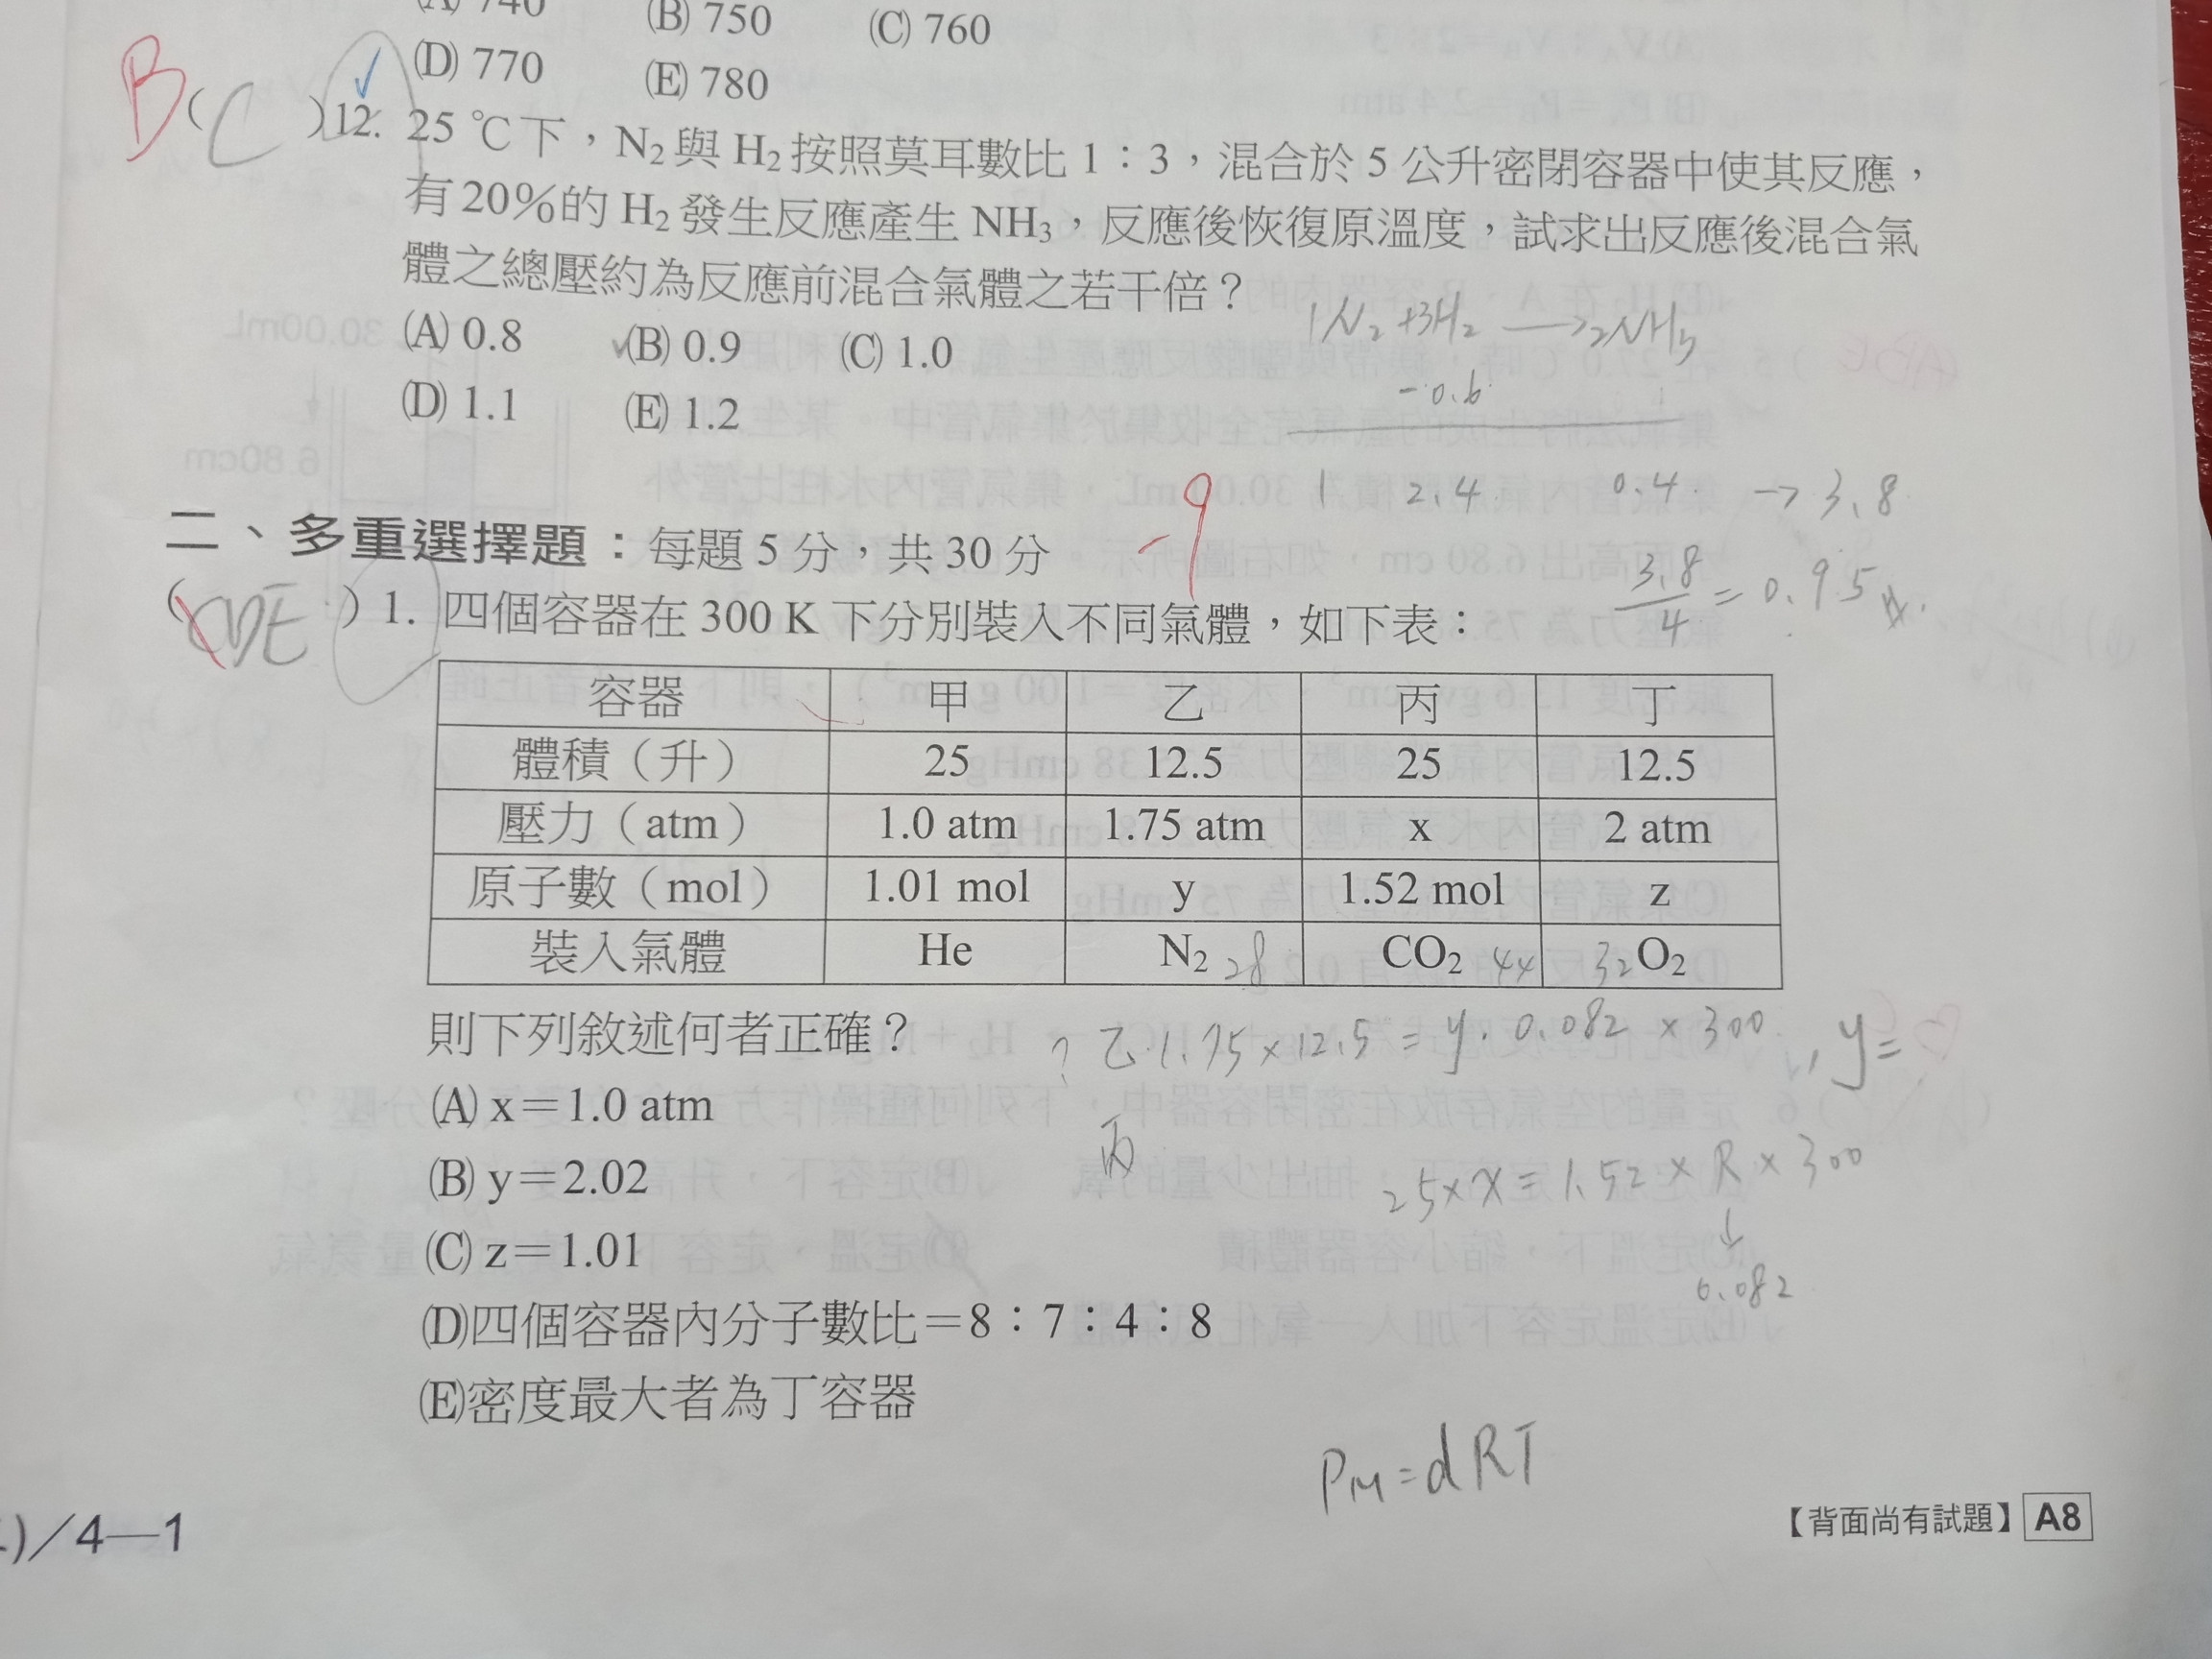 (A) 740 (B) 750 (C) 760
(D) 770 (E) 780
B ( C )12. 25 ℃下，N₂與 H₂按照莫耳數比 1：3，混合於 5 公升密閉容器中使其反應，
有 20%的 H₂發生反應產生 NH₃，反應後恢復原溫度，試求出反應後混合氣
體之總壓約為反應前混合氣體之若干倍？
(A) 0.8 (B) 0.9 (C) 1.0
(D) 1.1 (E) 1.2
1N₂ +3H₂ → 2NH₃
-0.6
1 2.4 0.4 → 3.8
3.8/4 = 0.95
-9
二、多重選擇題：每題 5 分，共 30 分
( CDE ) 1. 四個容器在 300 K 下分別裝入不同氣體，如下表：
容器 甲 乙 丙 丁
體積（升） 25 12.5 25 12.5
壓力（atm） 1.0 atm 1.75 atm x 2 atm
原子數（mol） 1.01 mol y 1.52 mol z
裝入氣體 He N₂ 28 CO₂ 44 32 O₂
則下列敘述何者正確？
? 乙.1.75×12.5 = y. 0.082 × 300 , y=
(A) x＝1.0 atm
丙
(B) y＝2.02
25×x = 1.52 × R × 300
↓
0.082
(C) z＝1.01
(D)四個容器內分子數比＝8：7：4：8
(E)密度最大者為丁容器
PM=dRT
)／4—1
【背面尚有試題】 A8